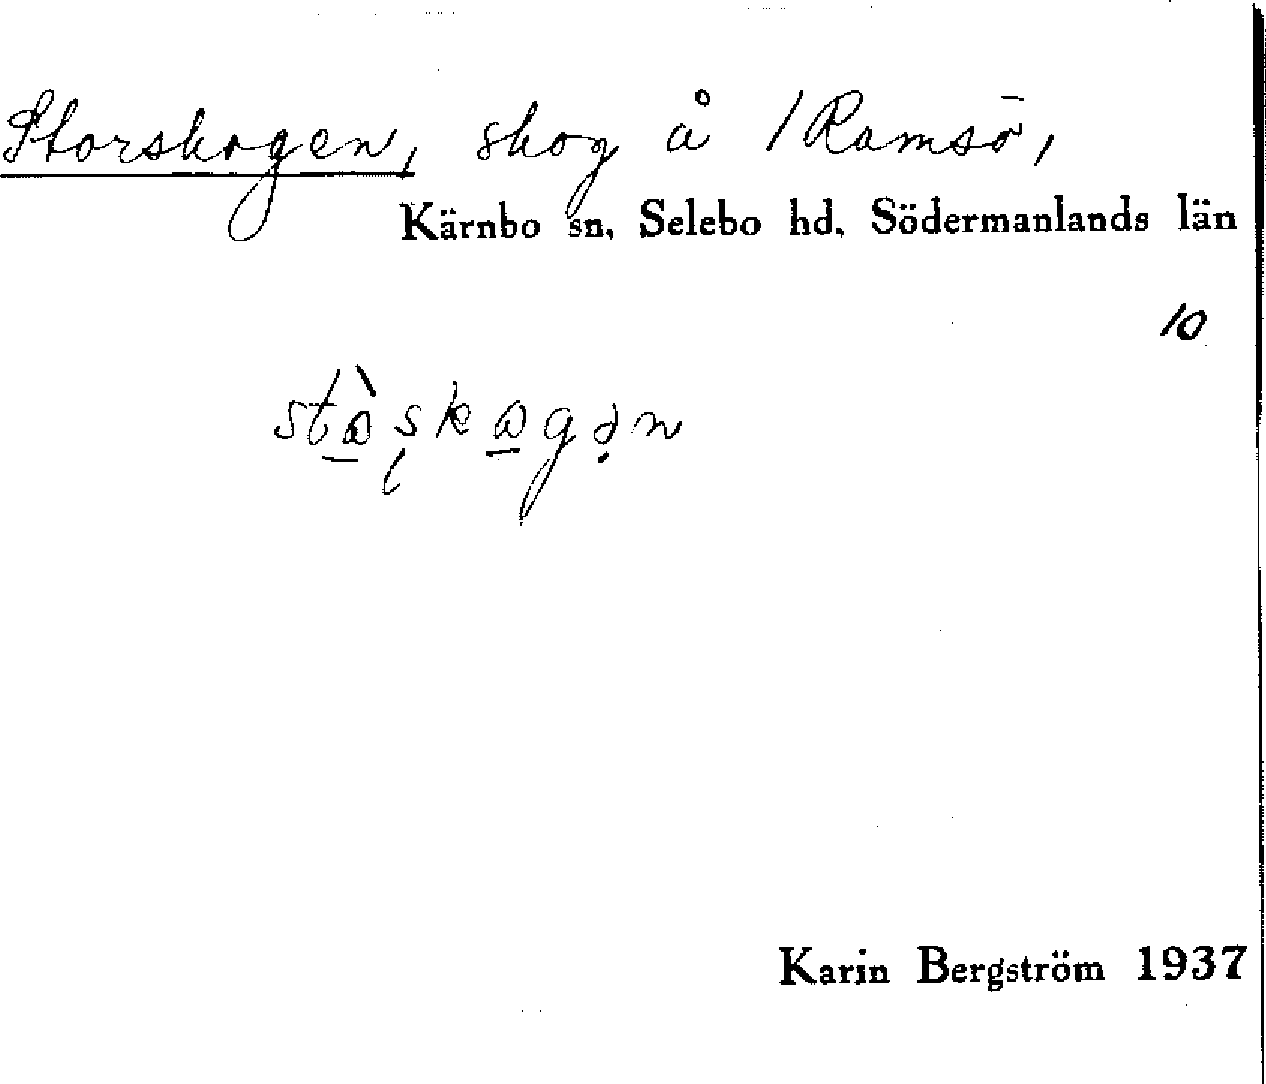 Storskogen, skog å /Ramsö,
Kärnbo sn, Selebo hd. Södermanlands län
10
Karin Bergström 1937